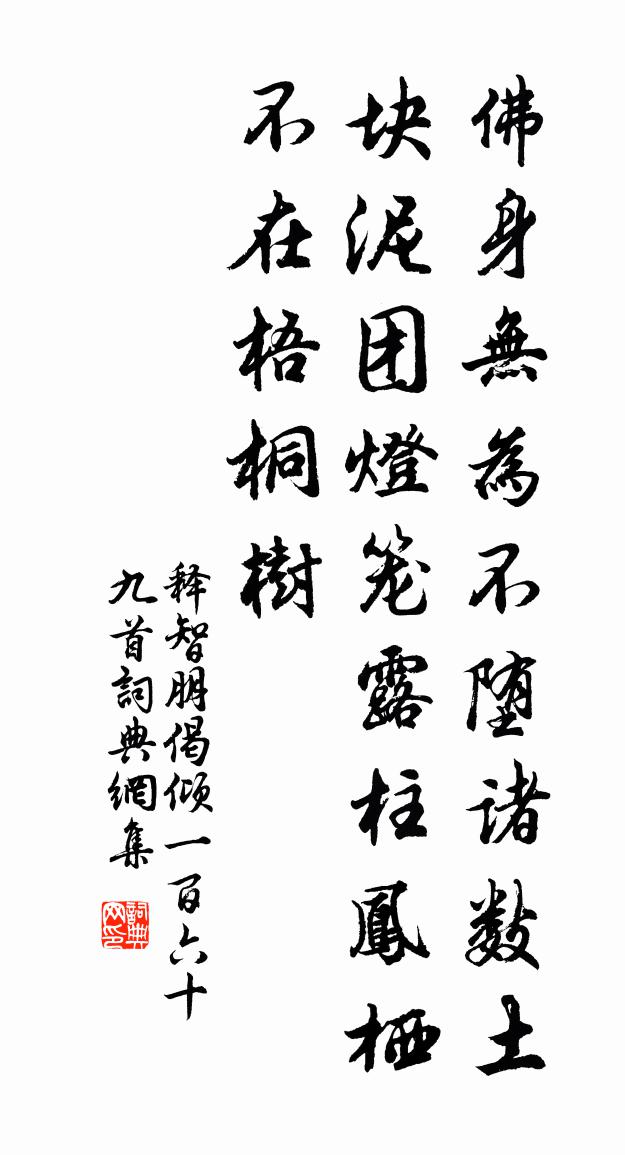 佛身無為不堕诸数土
块泥团燈笼露柱鳳栖
不在梧桐樹
释智朋偈倾一百六十
九首詞典網集
詞典网印